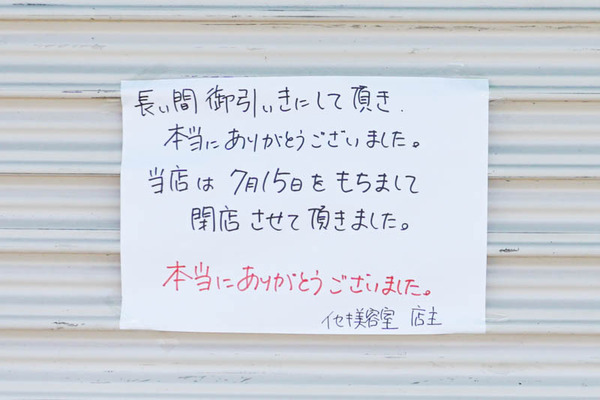 長い間 御引いきにして頂き.
本当にありがとうございました。
当店は 7月15日をもちまして
閉店させて頂きました。
本当にありがとうございました。
イセキ美容室 店主